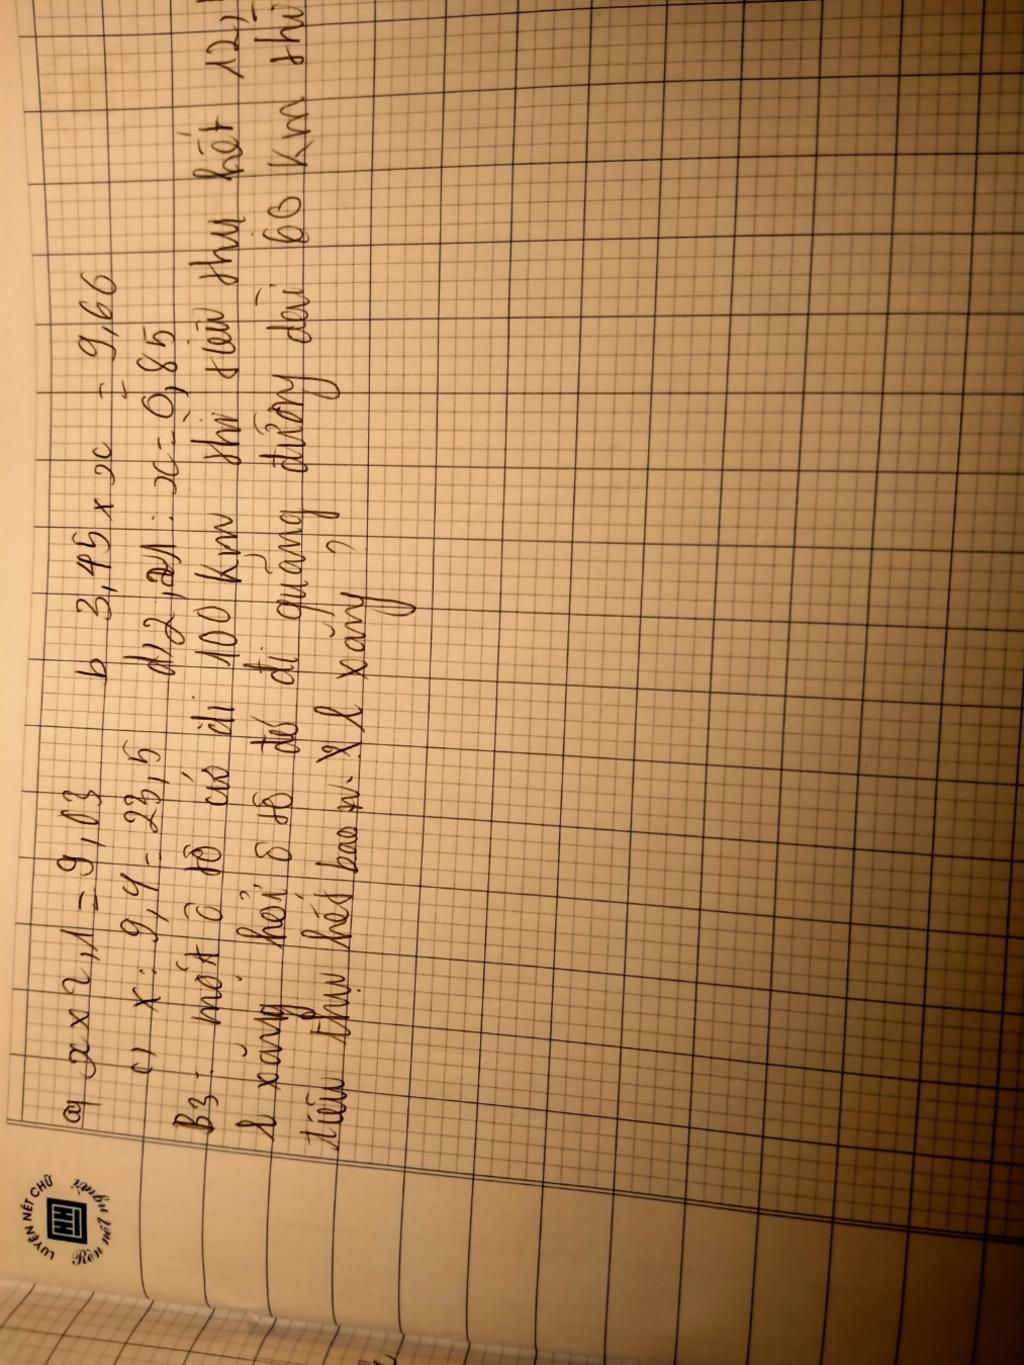 LUYỆN NÉT CHỮ
Rèn nết người
HH
a) x x 2,1 = 9,03 b 3,45 x x = 9,66
c) x : 9,4 = 23,5 d) 2,21 : x = 0,85
B3 : một ô tô cứ đi 100 km thì tiêu thụ hết 12,
l xăng, hỏi ô tô đó đi quãng đường dài 60 km thì
tiêu thụ hết bao n. l xăng ?